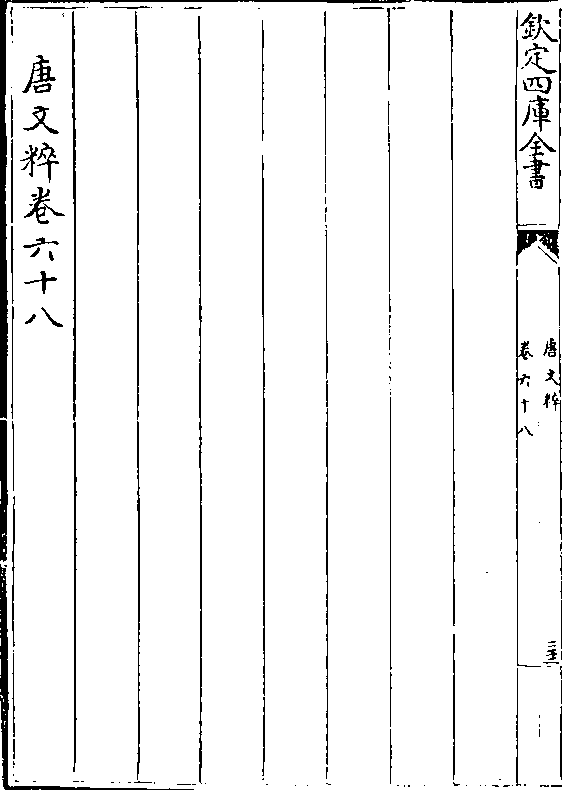 欽定四庫全書
唐文粹
卷六十八
唐文粹卷六十八